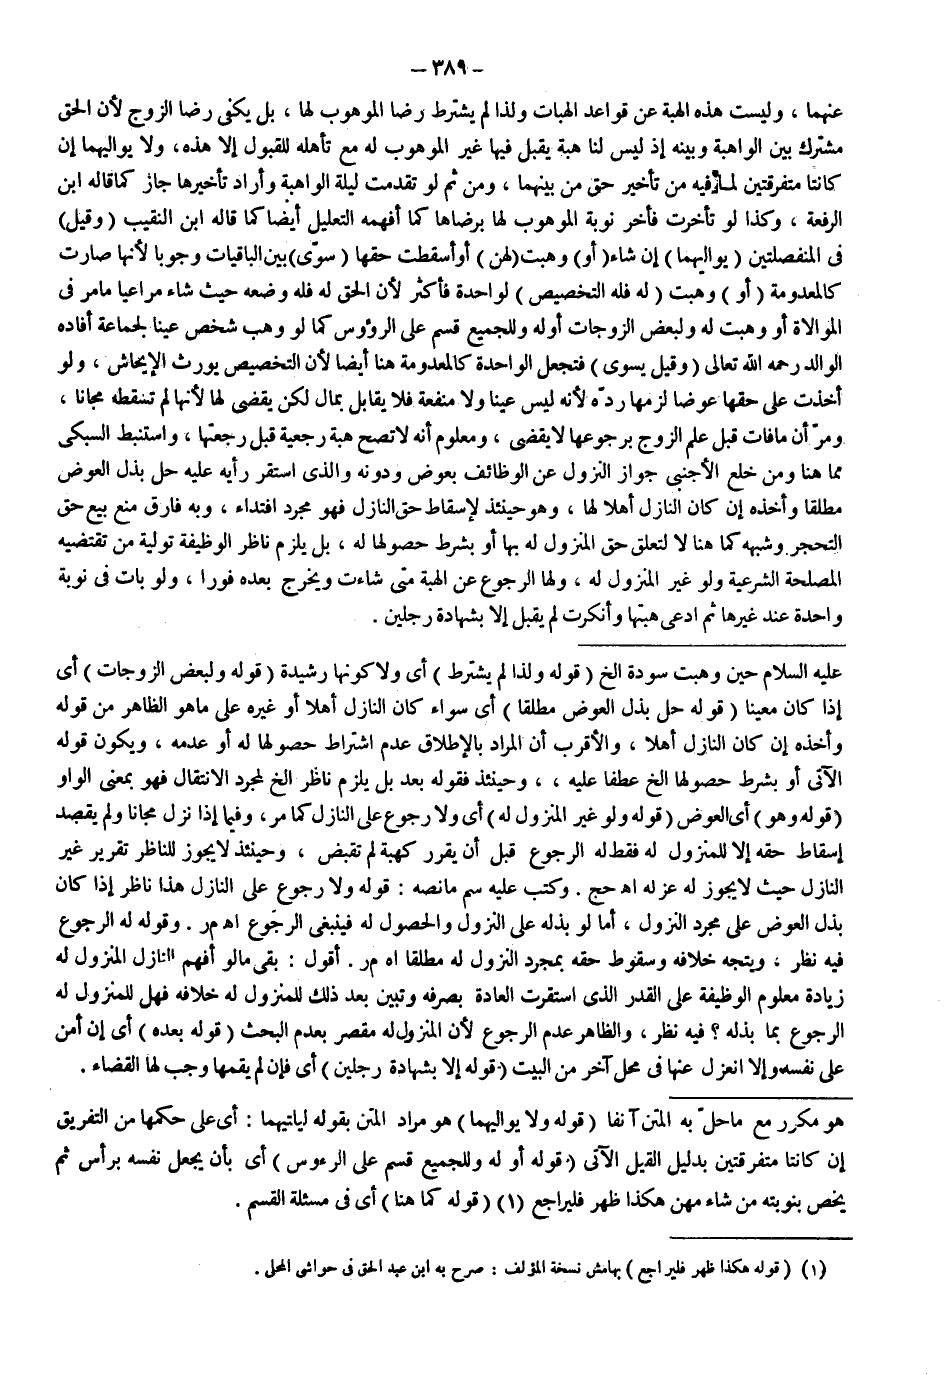 - ٣٨٩ -
عنهما ، وليست هذه الهبة عن قواعد الهبات ولذا لم يشترط رضا الموهوب لها ، بل يكفى رضا الزوج لأن الحق
مشترك بين الواهبة وبينه إذ ليس لنا هبة يقبل فيها غير الموهوب له مع تأهله للقبول إلا هذه، ولا يواليهما إن
كانتا متفرقتين لما فيه من تأخير حق من بينهما ، ومن ثم لو تقدمت ليلة الواهبة وأراد تأخيرها جاز كما قاله ابن
الرفعة ، وكذا لو تأخرت فأخر نوبة الموهوب لها برضاها كما أفهمه التعليل أيضا كما قاله ابن النقيب ( وقيل)
فى المنفصلتين ( يواليهما ) إن شاء ( أو ) وهبت (لهن ) أو أسقطت حقها ( سوّى) بين الباقيات وجوبا لأنها صارت
كالمعدومة ( أو ) وهبت ( له فله التخصيص ) لواحدة فأكثر لأن الحق له فله وضعه حيث شاء مراعيا مامر فى
الموالاة أو وهبت له ولبعض الزوجات أوله وللجميع قسم على الرؤوس كما لو وهب شخص عينا لجماعة أفاده
الوالد رحمه الله تعالى ( وقيل يسوى ) فتجعل الواحدة كالمعدومة هنا أيضا لأن التخصيص يورث الإيحاش ، ولو
أخذت على حقها عوضا لزمها ردّه لأنه ليس عينا ولا منفعة فلا يقابل بمال لكن يقضى لها لأنها لم تسقطه مجانا ،
ومرّ أن مافات قبل علم الزوج برجوعها لايقضى ، ومعلوم أنه لاتصح هبة رجعية قبل رجعتها ، واستنبط السبكى
مما هنا ومن خلع الأجنبى جواز النزول عن الوظائف بعوض ودونه والذى استقر رأيه عليه حل بذل العوض
مطلقا وأخذه إن كان النازل أهلا لها ، وهو حينئذ لإسقاط حق النازل فهو مجرد افتداء ، وبه فارق منع بيع حق
التحجر وشبهه كما هنا لا لتعلق حق المنزول له بها أو بشرط حصولها له ، بل يلزم ناظر الوظيفة تولية من تقتضيه
المصلحة الشرعية ولو غير المنزول له ، ولها الرجوع عن الهبة متى شاءت ويخرج بعده فورا ، ولو بات فى نوبة
واحدة عند غيرها ثم ادعى هبتها وأنكرت لم يقبل إلا بشهادة رجلين .
عليه السلام حين وهبت سودة الخ ( قوله ولذا لم يشترط ) أى ولا كونها رشيدة ( قوله ولبعض الزوجات ) أى
إذا كان معينا ( قوله حل بذل العوض مطلقا ) أى سواء كان النازل أهلا أو غيره على ماهو الظاهر من قوله
وأخذه إن كان النازل أهلا ، والأقرب أن المراد بالإطلاق عدم اشتراط حصولها له أو عدمه ، ويكون قوله
الآتى أو بشرط حصولها الخ عطفا عليه ، ، وحينئذ فقوله بعد بل يلزم ناظر الخ لمجرد الانتقال فهو بمعنى الواو
(قوله وهو ) أى العوض (قوله ولو غير المنزول له ) أى ولا رجوع على النازل كما مر، وفيما إذا نزل مجانا ولم يقصد
إسقاط حقه إلا للمنزول له فقط له الرجوع قبل أن يقرر كهبة لم تقبض ، وحينئذ لايجوز للناظر تقرير غير
النازل حيث لايجوز له عزله اه حج . وكتب عليه سم مانصه : قوله ولا رجوع على النازل هذا ناظر إذا كان
بذل العوض على مجرد النزول ، أما لو بذله على النزول والحصول له فينبغى الرجوع اه مر . وقوله له الرجوع
فيه نظر ، ويتجه خلافه وسقوط حقه بمجرد النزول له مطلقا اه مر . أقول : بقى مالو أفهم النازل المنزول له
زيادة معلوم الوظيفة على القدر الذى استقرت العادة بصرفه وتبين بعد ذلك للمنزول له خلافه فهل للمنزول له
الرجوع بما بذله ؟ فيه نظر ، والظاهر عدم الرجوع لأن المنزول له مقصر بعدم البحث ( قوله بعده ) أى إن أمن
على نفسه وإلا انعزل عنها فى محل آخر من البيت ( قوله إلا بشهادة رجلين ) أى فإن لم يقمها وجب لها القضاء .
هو مكرر مع ماحلّ به المتن آنفا ( قوله ولا يواليهما ) هو مراد المتن بقوله لياتيهما : أى على حكمها من التفريق
إن كانتا متفرقتين بدليل القيل الآتى ( قوله أو له وللجميع قسم على الرءوس ) أى بأن يجعل نفسه برأس ثم
يخص بنوبته من شاء مهن هكذا ظهر فليراجع (١) ( قوله كما هنا ) أى فى مسئلة القسم .
(١) ( قوله هكذا ظهر فليراجع ) بهامش نسخة المؤلف : صرح به ابن عبد الحق فى حواشى المحلى .